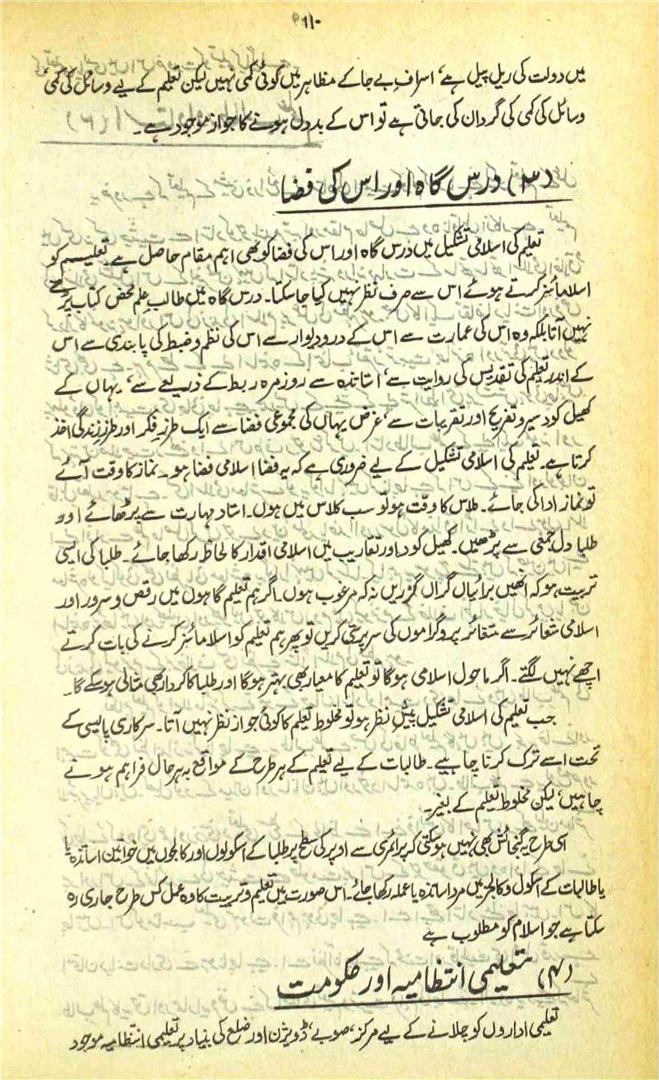 ۹۱۰
میں دولت کی ریل پیل ہے، اسرافِ بے جا کے مظاہر میں کوئی کمی نہیں لیکن تعلیم کے لیے وسائل کی کمی،
وسائل کی کمی کی گردان کی جاتی ہے تو اس کے بددل ہونے کا جواز موجود ہے۔
(۳) درس گاہ اور اس کی فضا
تعلیم کی اسلامی تشکیل میں درس گاہ اور اس کی فضا کو بھی اہم مقام حاصل ہے تعلیم کو
اسلامائز کرتے ہوئے اس سے صرف نظر نہیں کیا جا سکتا۔ درس گاہ میں طالب علم محض کتاب پڑھنے
نہیں آتا بلکہ وہ اس کی عمارت سے اس کے در و دیوار سے اس کی نظم و ضبط کی پابندی سے اس
کے اندر تعلیم کی تقدیس کی روایت سے، اساتذہ سے روزمرہ ربط کے ذریعے سے، یہاں کے
کھیل کود سیر و تفریح اور تقریبات سے، غرض یہاں کی مجموعی فضا سے ایک طرزِ فکر اور طرزِ زندگی اخذ
کرتا ہے۔ تعلیم کی اسلامی تشکیل کے لیے ضروری ہے کہ یہ فضا اسلامی فضا ہو۔ نماز کا وقت آئے
تو نماز ادا کی جائے۔ کلاس کا وقت ہو تو سب کلاس میں ہوں۔ استاد مہارت سے پڑھائے اور
طلبا دل جمعی سے پڑھیں۔ کھیل کود اور تقاریب میں اسلامی اقدار کا لحاظ رکھا جائے۔ طلبا کی ایسی
تربیت ہو کہ انھیں برائیاں گراں گزریں نہ کہ مرغوب ہوں۔ اگر ہم تعلیم گاہوں میں رقص و سرور اور
اسلامی شعائر سے متغائر پروگراموں کی سرپرستی کریں تو پھر ہم تعلیم کو اسلامائز کرنے کی بات کرتے
اچھے نہیں لگتے۔ اگر ماحول اسلامی ہوگا تو تعلیم کا معیار بھی بہتر ہوگا اور طلبا کا کردار بھی مثالی ہو سکے گا۔
جب تعلیم کی اسلامی تشکیل پیشِ نظر ہو تو مخلوط تعلیم کا کوئی جواز نظر نہیں آتا۔ سرکاری پالیسی کے
تحت اسے ترک کرنا چاہیے۔ طالبات کے لیے تعلیم کے ہر طرح کے مواقع بہرحال فراہم ہونے
چاہئیں لیکن مخلوط تعلیم کے بغیر۔
اسی طرح یہ گنجائش بھی نہیں ہو سکتی کہ پرائمری سے اوپر کی سطح پر طلبا کے اسکولوں اور کالجوں میں خواتین اساتذہ یا
یا طالبات کے اسکول و کالجز میں مرد اساتذہ یا عملہ رکھا جائے۔ اس صورت میں تعلیم و تربیت کا وہ عمل کس طرح جاری رہ
سکتا ہے جو اسلام کو مطلوب ہے
(۴) تعلیمی انتظامیہ اور حکومت
تعلیمی اداروں کو چلانے کے لیے مرکز، صوبے، ڈویژن اور ضلع کی بنیاد پر تعلیمی انتظامیہ موجود